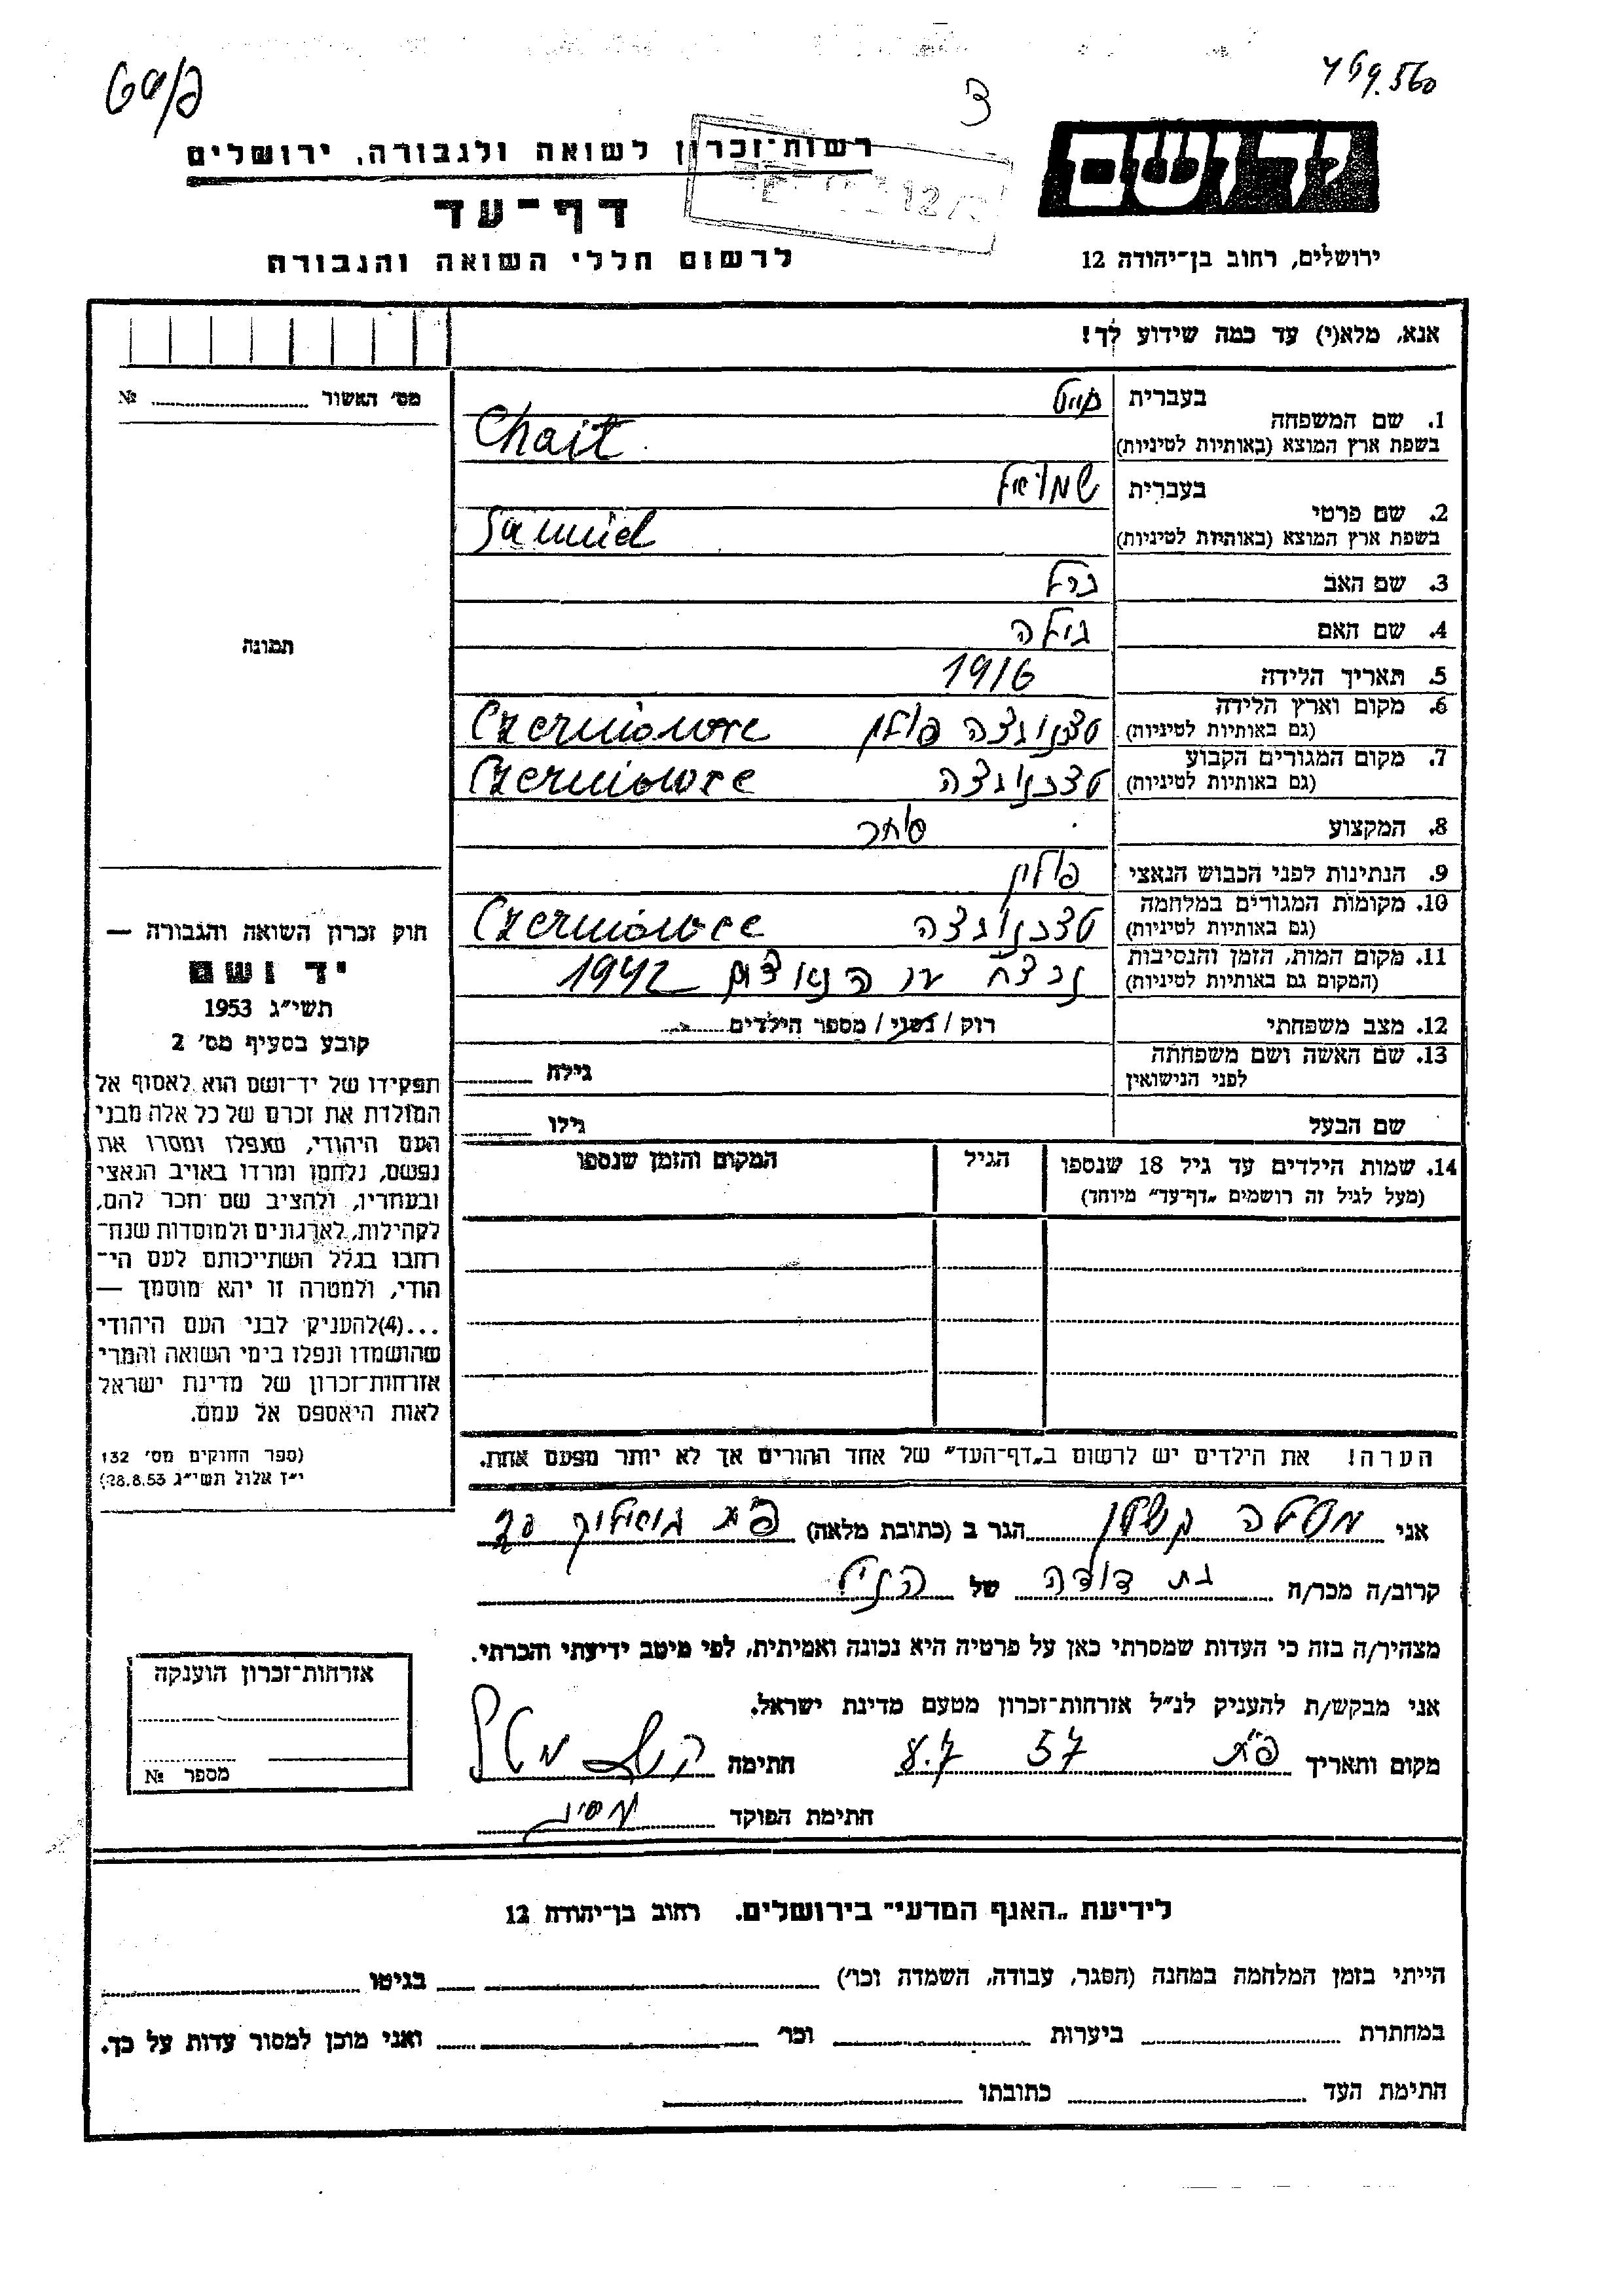 ד
רשות־זכרון לשואה ולגבורה, ירושלים
יד ושם
דף־עד
לרשום חללי השואה והגבורה
ירושלים, רחוב בן־יהודה 12
אנא, מלא(י) עד כמה שידוע לך!
מס' האשור № 
1. שם המשפחה בעברית חייט
בשפת ארץ המוצא (באותיות לטיניות) Chait
2. שם פרטי בעברית שמואל
בשפת ארץ המוצא (באותיות לטיניות) Samuel
3. שם האב ברל
4. שם האם גולה
5. תאריך הלידה 1916
6. מקום וארץ הלידה
(גם באותיות לטיניות) פולין Czerniowce
7. מקום המגורים הקבוע
(גם באותיות לטיניות) Czerniowce
8. המקצוע סוחר
9. הנתינות לפני הכבוש הנאצי פולין
10. מקומות המגורים במלחמה
(גם באותיות לטיניות) Czerniowce
11. מקום המות, הזמן והנסיבות
(המקום גם באותיות לטיניות) נרצח ע"י הנאצים 1942
12. מצב משפחתי רוק / נשוי / מספר הילדים
13. שם האשה ושם משפחתה
לפני הנישואין גילה
שם הבעל גילו
14. שמות הילדים עד גיל 18 שנספו הגיל המקום והזמן שנספו
(מעל לגיל זה רושמים „דף־עד" מיוחד)
הערה! את הילדים יש לרשום ב„דף־העד" של אחד ההורים אך לא יותר מפעם אחת.
תמונה
חוק זכרון השואה והגבורה —
יד ושם
תשי"ג 1953
קובע בסעיף מס' 2
תפקידו של יד־ושם הוא לאסוף אל
המולדת את זכרם של כל אלה מבני
העם היהודי, שנפלו ומסרו את
נפשם, נלחמו ומרדו באויב הנאצי
ובעוזריו, ולהציב שם וזכר להם,
לקהילות, לארגונים ולמוסדות שנח־
רבו בגלל השתייכותם לעם הי־
הודי, ולמטרה זו יהא מוסמך —
...(4)להעניק לבני העם היהודי
שהושמדו ונפלו בימי השואה והמרי
אזרחות־זכרון של מדינת ישראל
לאות היאספם אל עמם.
(ספר החוקים מס' 132
י"ז אלול תשי"ג 28.8.53)
אני הגר ב (כתובת מלאה) פ"ת
קרוב/ה מכר/ה בת דודה של הנ"ל
מצהיר/ה בזה כי העדות שמסרתי כאן על פרטיה היא נכונה ואמיתית, לפי מיטב ידיעתי והכרתי.
אני מבקש/ת להעניק לנ"ל אזרחות־זכרון מטעם מדינת ישראל.
מקום ותאריך פ"ת 57 8.7 חתימה
חתימת הפוקד
אזרחות־זכרון הוענקה
מספר №
לידיעת „האגף המדעי" בירושלים. רחוב בן־יהודה 12
הייתי בזמן המלחמה במחנה (הסגר, עבודה, השמדה וכו') בגיטו
במחתרת ביערות וכו' ואני מוכן למסור עדות על כך.
חתימת העד כתובתו